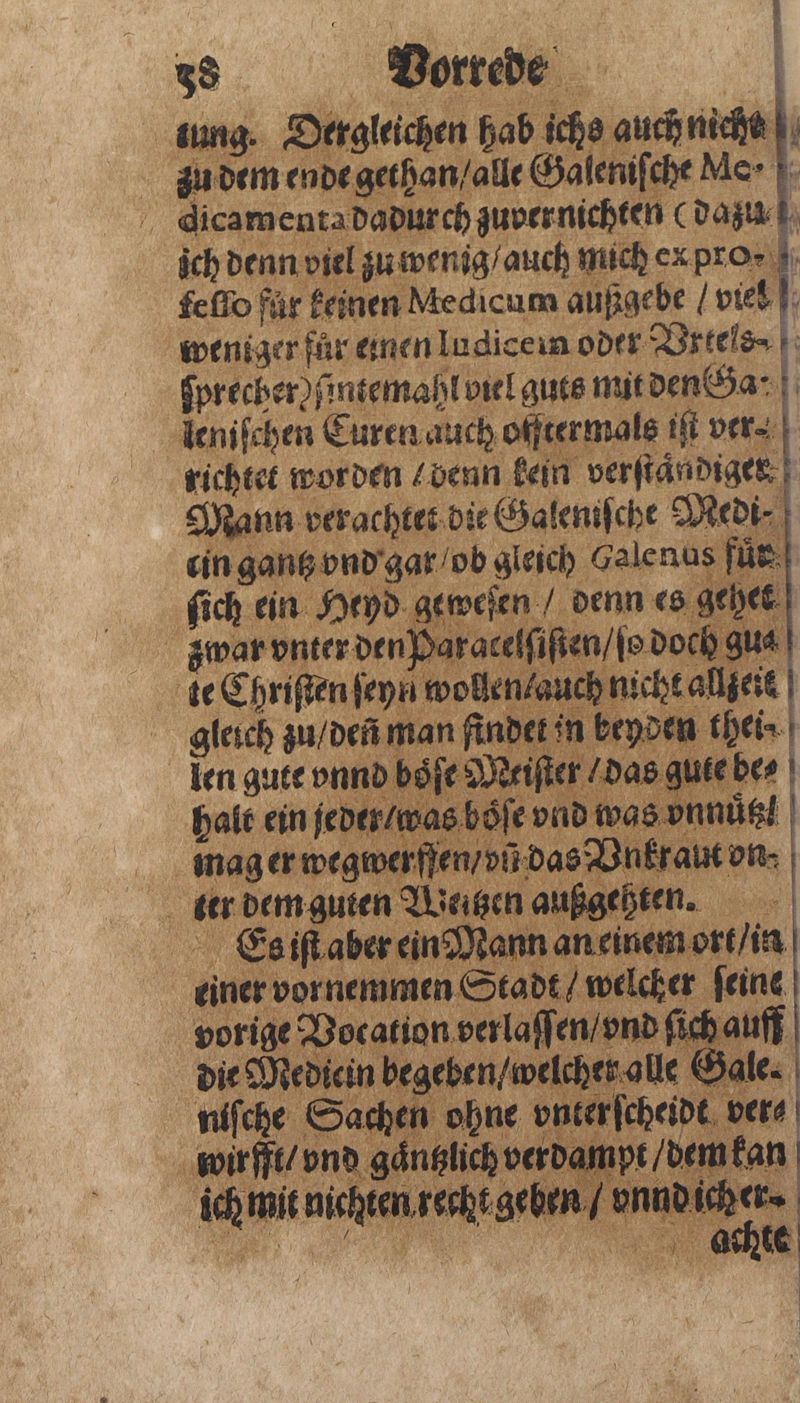 38 Vorrede
tung. Dergleichen hab ichs auch nicht
zu dem ende gethan/alle Galeniſche Me-
dicamenta dadurch zuvernichten (dazu
ich denn viel zu wenig/auch mich ex pro-
feſſo fuͤr keinen Medicum außgebe / viel
weniger fuͤr einen Iudicem oder Vrtels-
ſprecher) ſintemahl viel guts mit den Ga-
leniſchen Curen auch offtermals iſt ver-
richtet worden / denn kein verſtaͤndiger
Mann verachtet die Galeniſche Medi-
cin gantz vnd gar/ob gleich Galenus fuͤr
ſich ein Heyd geweſen / denn es gehet
zwar vnter den Paracelſiſten/ſo doch gu-
te Chriſten ſeyn wollen/auch nicht allzeit
gleich zu/deñ man findet in beyden thei-
len gute vnnd boͤſe Meiſter / das gute be-
halt ein jeder/was boͤſe vnd was vnnuͤtz/
mag er wegwerffen/vñ das Vnkraut vn-
ter dem guten Weitzen außgehten.
Es iſt aber ein Mann an einem ort/in
einer vornemmen Stadt / welcher ſeine
vorige Vocation verlaſſen/vnd ſich auff
die Medicin begeben/welcher alle Gale-
niſche Sachen ohne vnterſcheidt ver-
wirfft/ vnd gaͤntzlich verdampt /dem kan
ich mit nichten recht geben / vnnd ich er-
achte